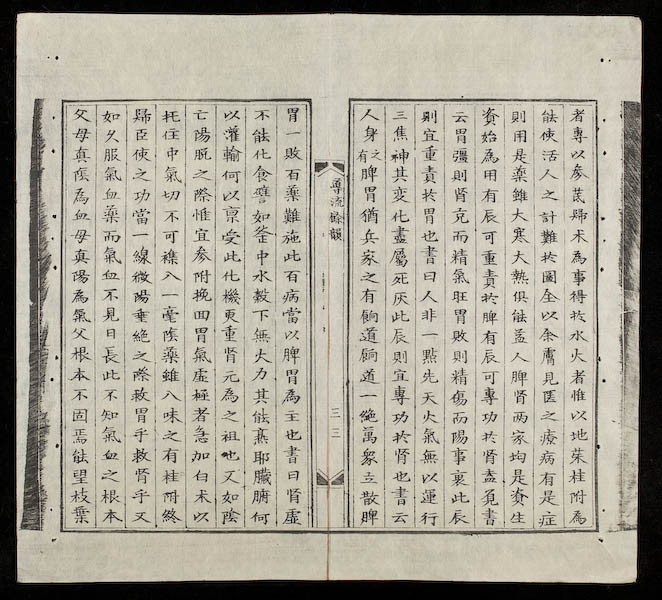 者專以參芪歸朮為事得於水火者惟以地茱桂附為
能使活人之計難於圖全以余膚見医之療病有是症
則用是藥雖大寒大熱俱能益人脾腎兩家均是資生
資始為用有辰可重責於脾有辰可專功於腎盍覔書
云胃彊則腎克而精氣旺胃敗則精傷而陽事衰此辰
則宜重責於胃也書曰人非一點先天火氣無以運行
三焦神其变化盡屬死灰此辰則宜專功於腎也書云
人身之有脾胃猶兵家之有餉道餉道一絶萬衆立散脾
導流餘韻
三三
胃一敗百藥難施此百病當以脾胃為主也書曰腎虛
不能化食譬如釜中水穀下無火力其能熟耶臟腑何
以灌輸何以禀受此化機更重腎元為之祖也又如陰
亡陽脫之際惟宜參附挽回胃氣虛極者急加白朮以
托住中氣切不可襍入一毫陰藥雖八味之有桂附終
歸臣使之功當一線微陽垂絶之際救胃乎救腎乎又
如久服氣血藥而氣血不見日長此不知氣血之根本
父母真陰為血母真陽為氣父根本不固焉能望枝葉